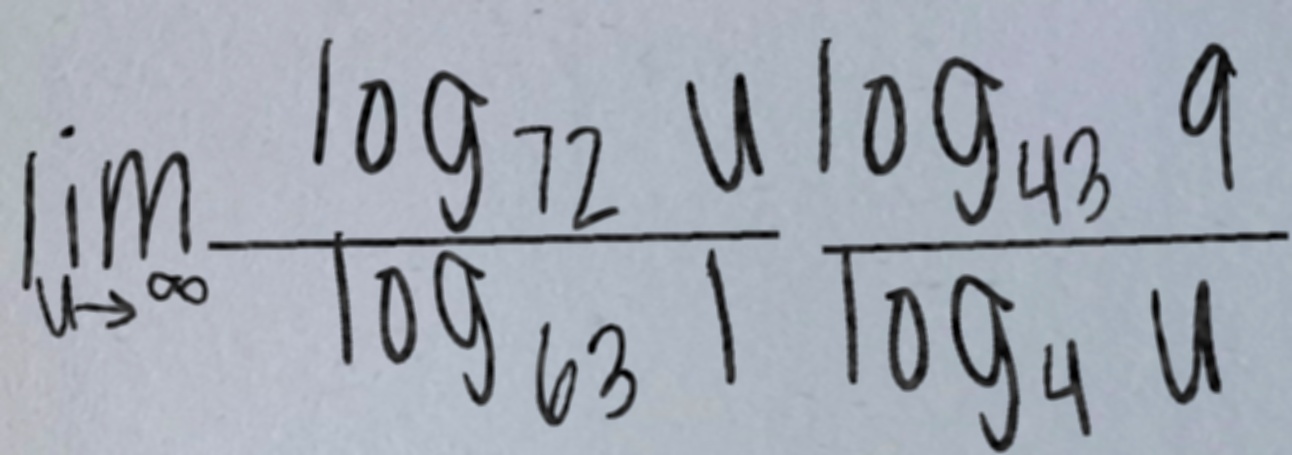 \lim_{u \to \infty} \frac{\log_{72} u}{\log_{63} 1} \frac{\log_{43} 9}{\log_{4} u}